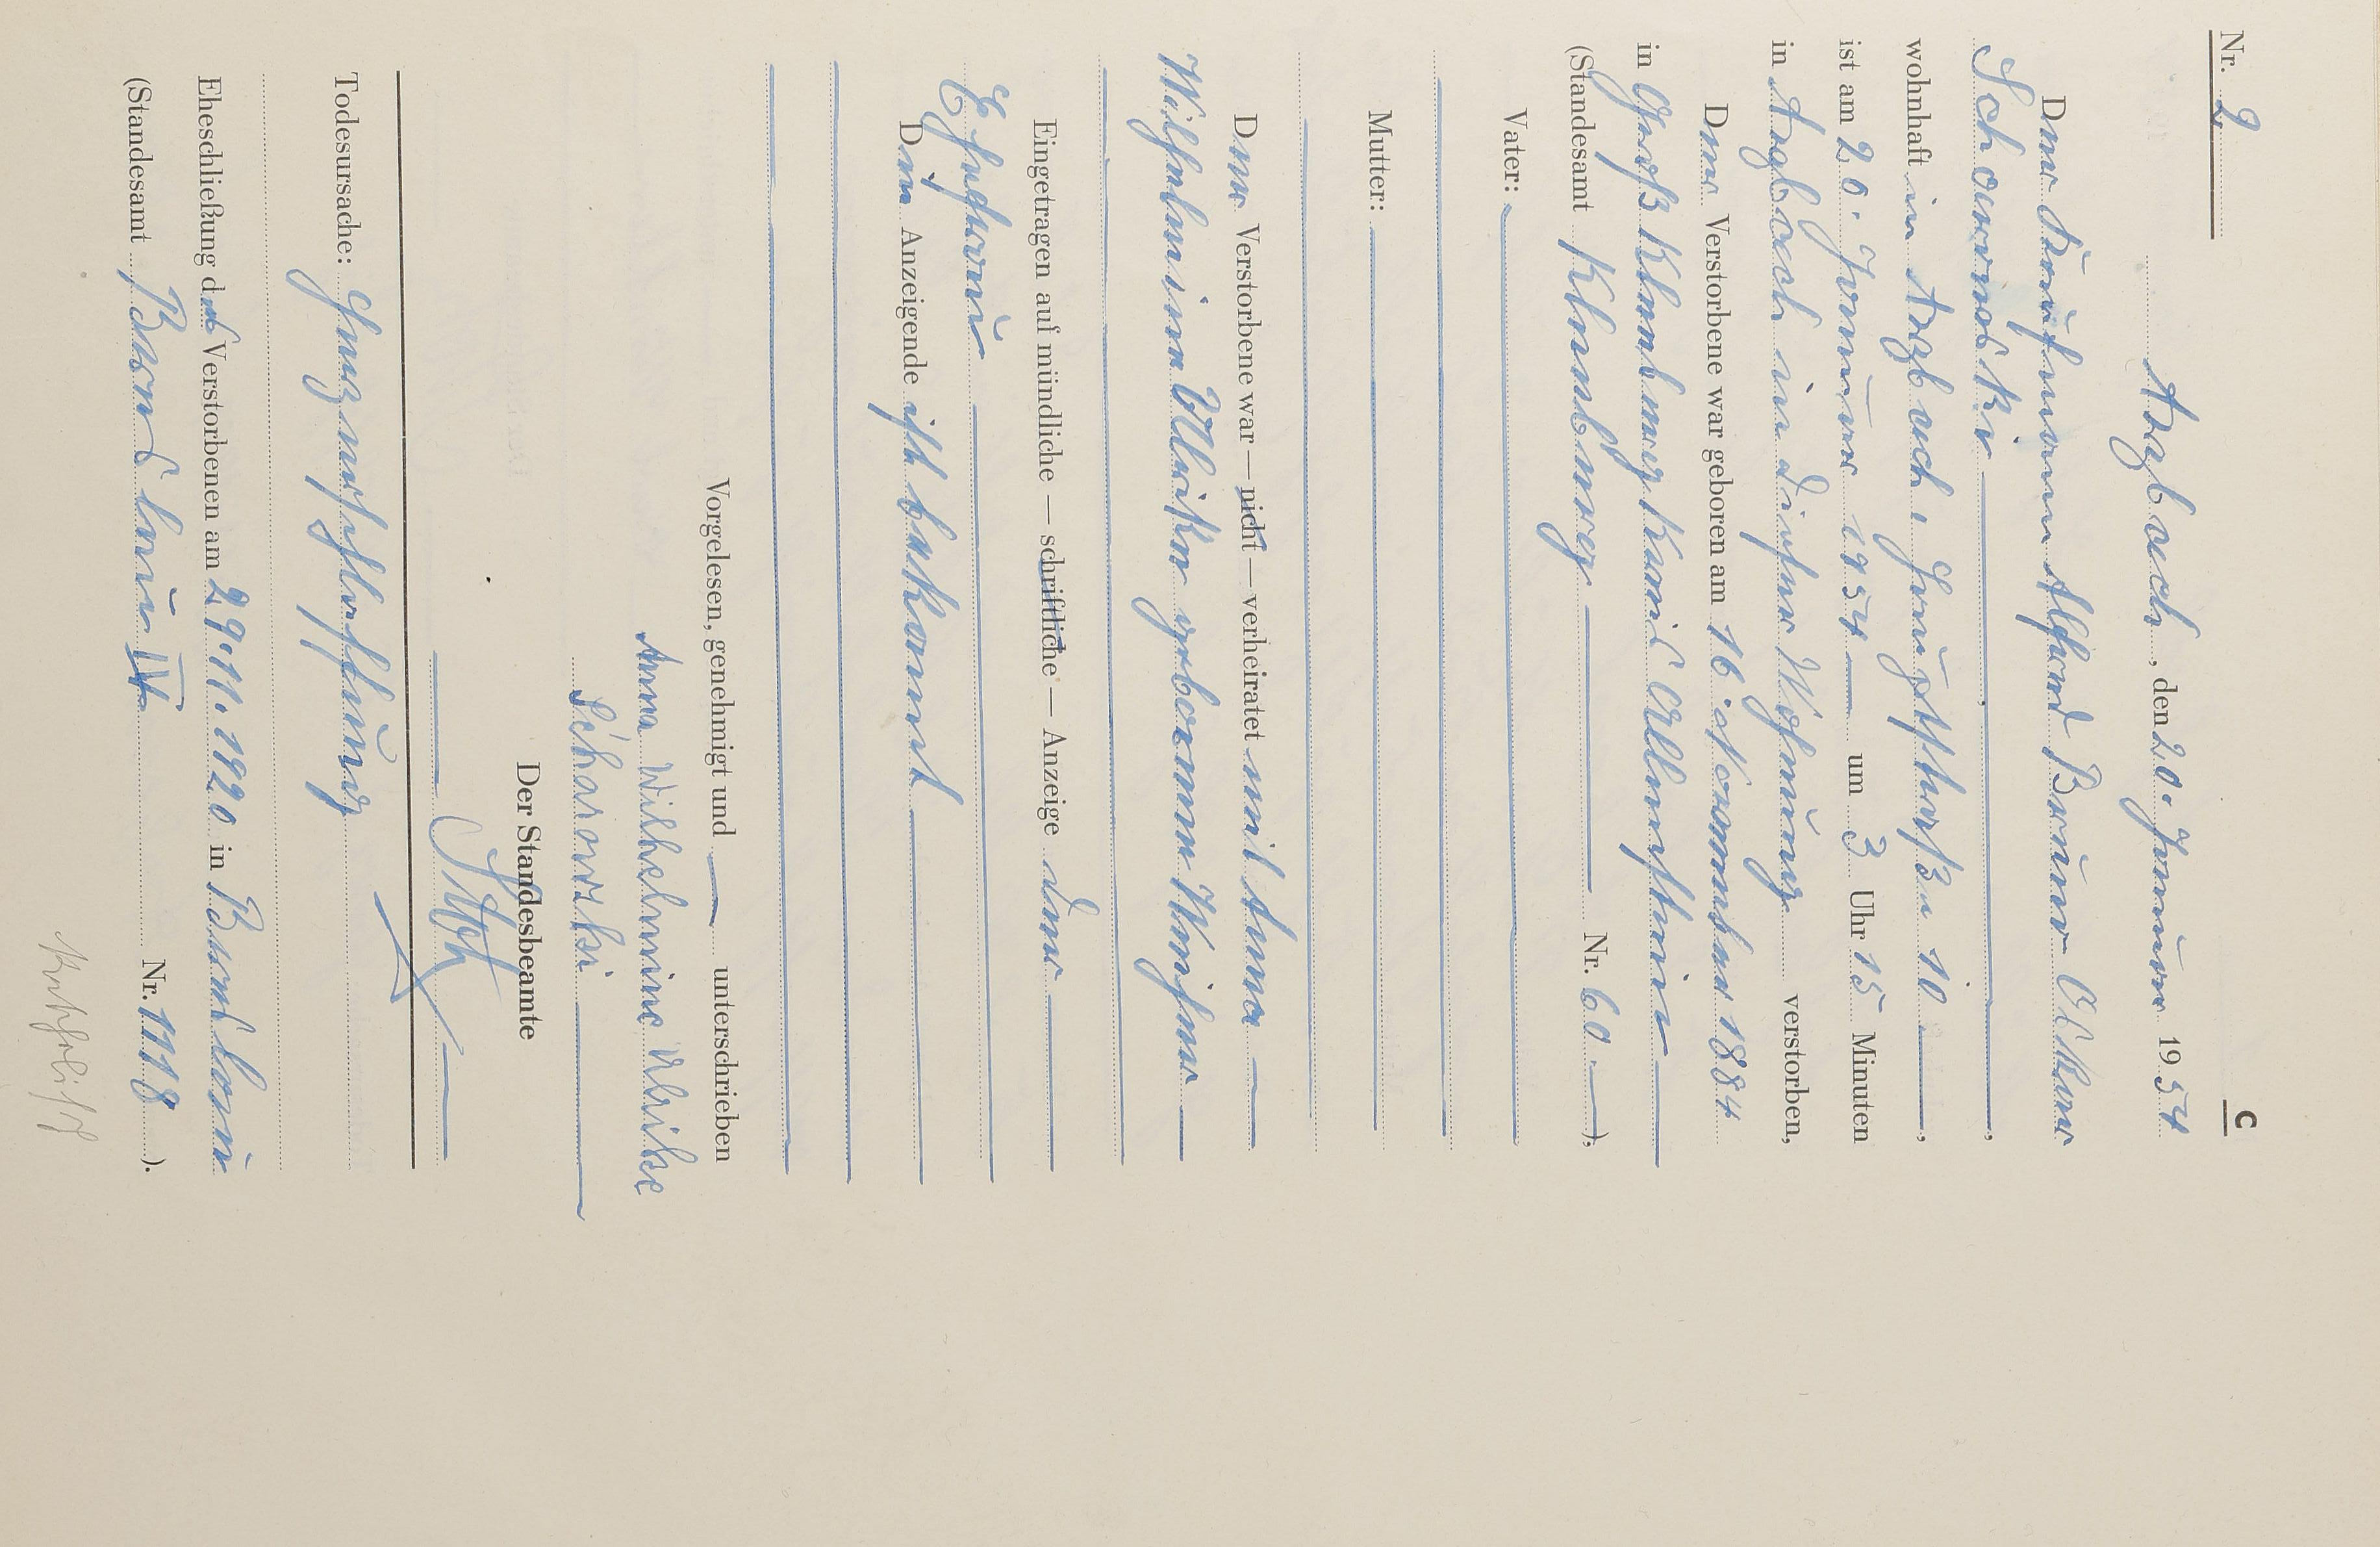 Nr. 2
C
Arzbach, den 20. Januar 1954
Der Kaufmann Alfred Bruno Oskar
Scharowski,
wohnhaft in Arzbach, Hauptstraße 10,
ist am 20. Januar 1954 um 3 Uhr 15 Minuten
in Arzbach in dieser Wohnung verstorben,
Der Verstorbene war geboren am 16. November 1884
in Groß Kleeberg Kreis Allenstein
(Standesamt Kleeberg Nr. 60),
Vater:
Mutter:
Der Verstorbene war — nicht — verheiratet mit Anna
Wilhelmine Ulrike geborene
Eingetragen auf mündliche — schriftliche — Anzeige der
Ehefrau
Die Anzeigende ist bekannt
Vorgelesen, genehmigt und unterschrieben
Anna Wilhelmine Ulrike
Scharowski
Der Standesbeamte
Todesursache: Herzerschlaffung
Eheschließung des Verstorbenen am 29.11.1920 in Breslau
(Standesamt Breslau IV Nr. 1118).